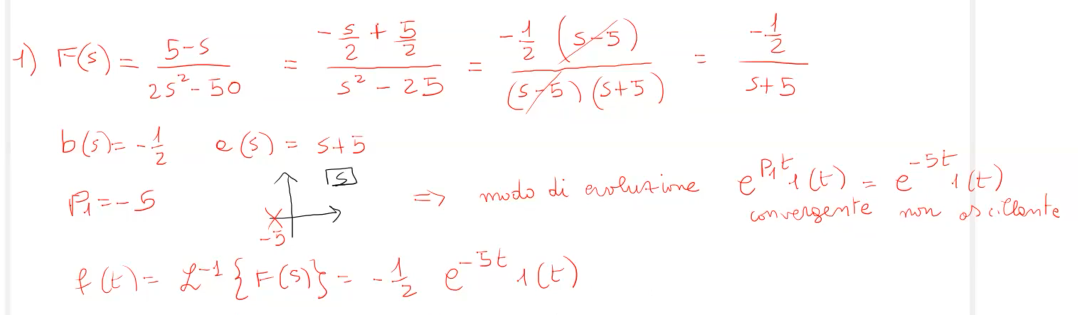 1) F(s) = (5-s)/(2s² - 50) = (-s/2 + 5/2)/(s² - 25) = (-1/2 (s-5))/((s-5)(s+5)) = (-1/2)/(s+5)
b(s) = -1/2 a(s) = s+5
P₁ = -5 -5 s ⇒ modo di evoluzione e^{P₁t} 1(t) = e^{-5t} 1(t)
convergente non oscillante
f(t) = ℒ⁻¹{F(s)} = -1/2 e^{-5t} 1(t)